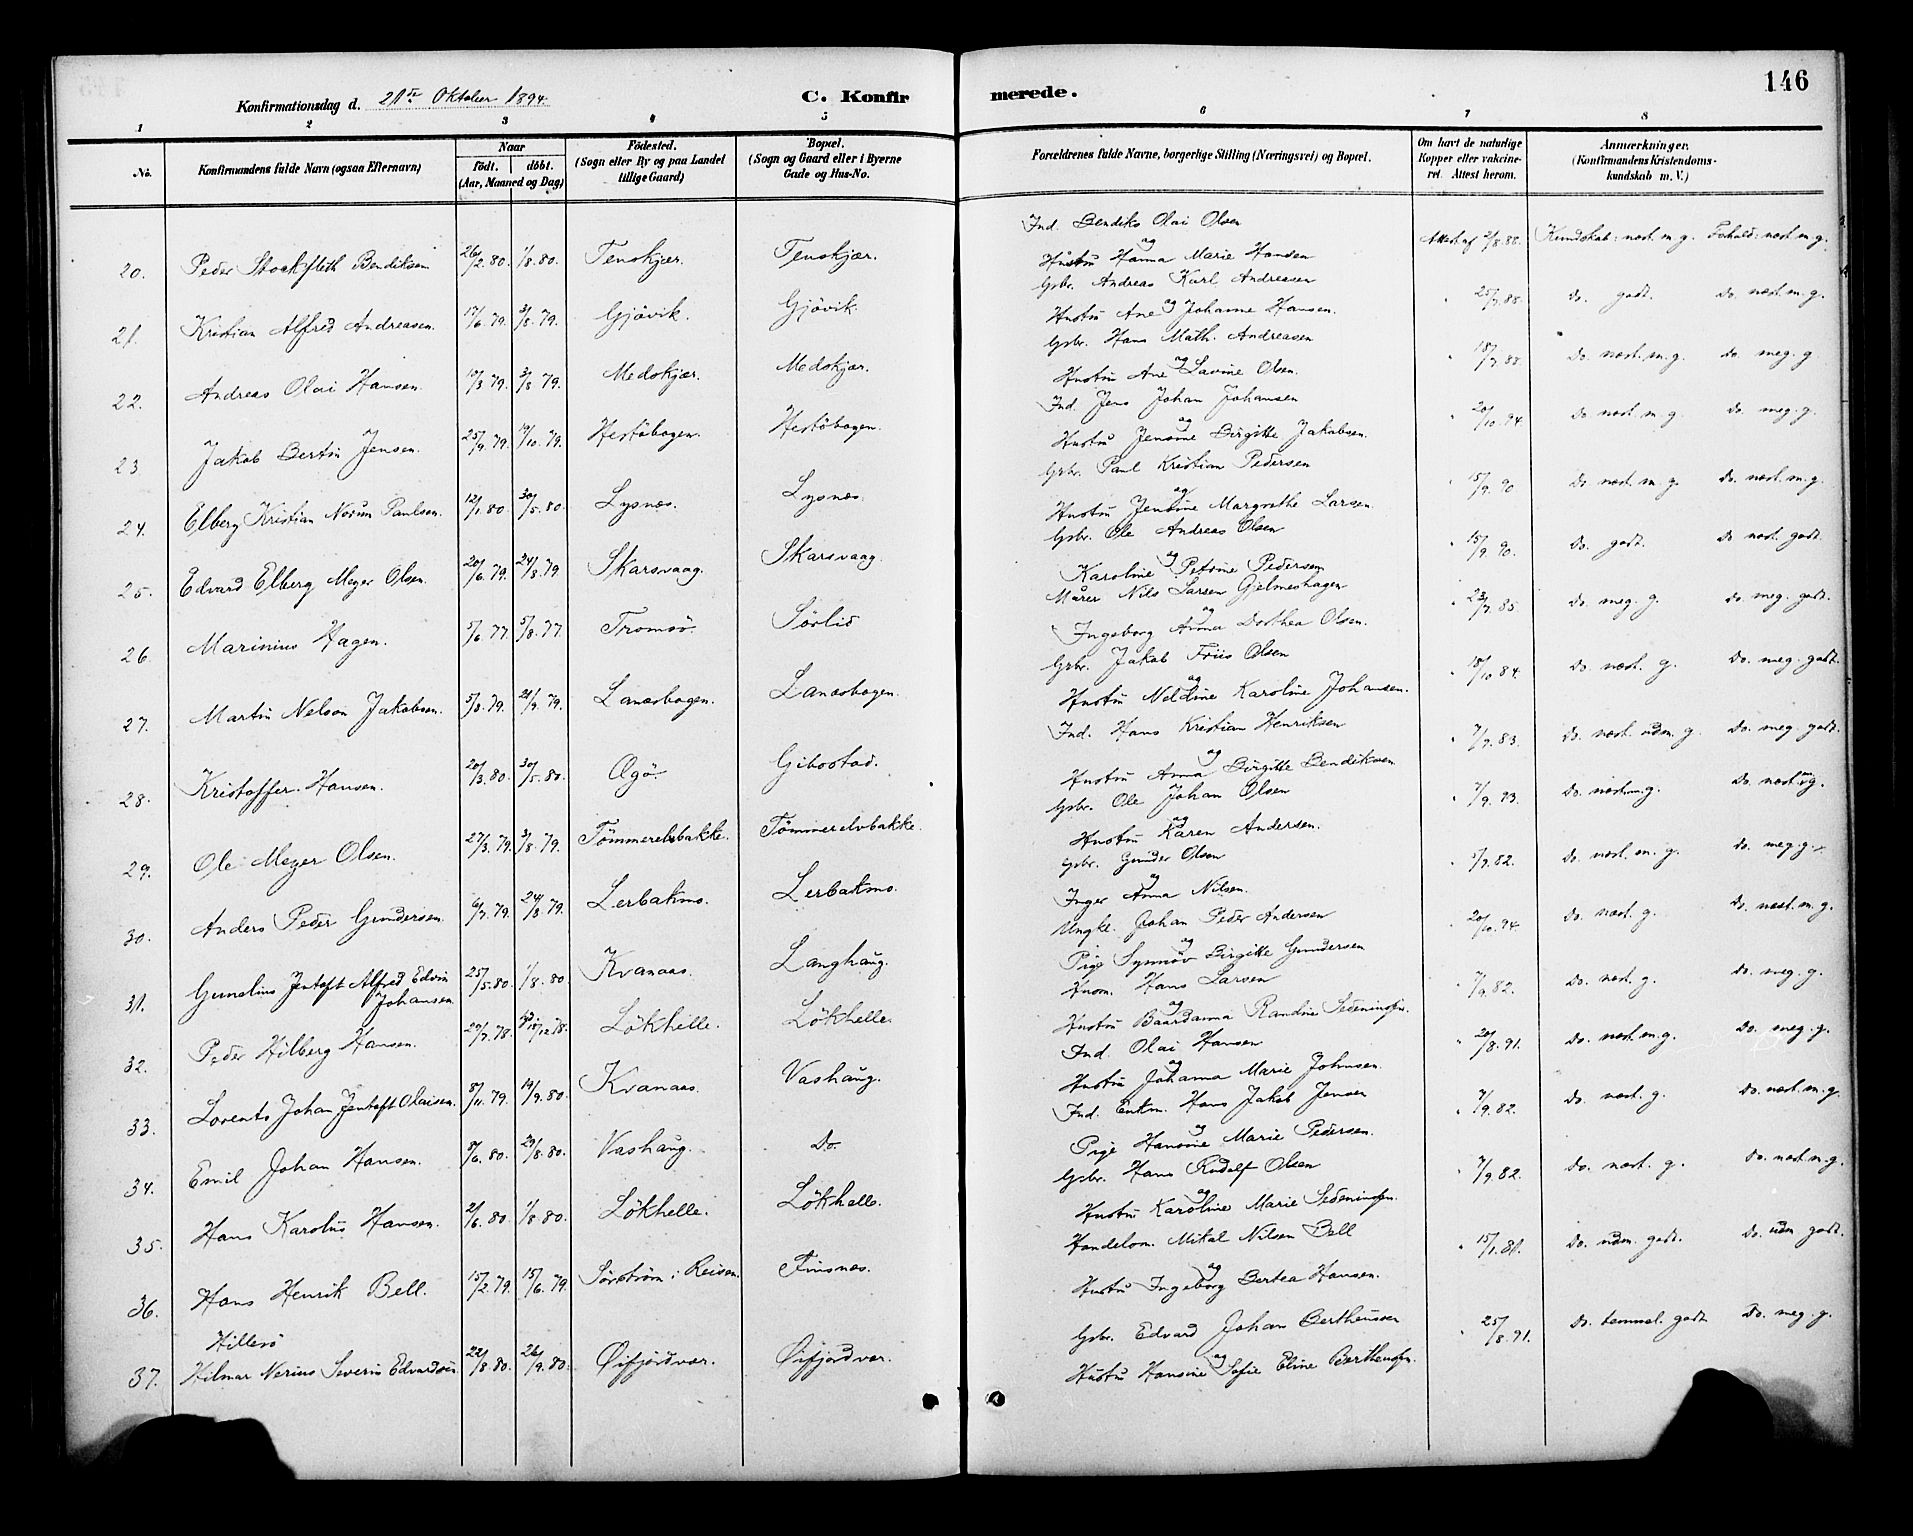 146
Konfirmationsdag d. 21de Oktober 1894. C. Konfir merede.
1 2 3 4 5 6 7 8
No. Konfirmandens fulde Navn (ogsaa Efternavn) Naar født. døbt. (Aar, Maaned og Dag) Fødested. (Sogn eller By og paa Landet tillige Gaard) Bopæl. (Sogn og Gaard eller i Byerne Gade og Hus-No. Forældrenes fulde Navne, borgerlige Stilling (Næringsvei) og Bopæl. Om havt de naturlige Kopper eller vakcineret. Attest herom. Anmærkninger. (Konfirmandens Kristendomskundskab m. V.)
20. Peder Stockfleth Bendiksen 26/2.80. 1/8.80. Tenskjær. Tenskjær. Ind. Bendiks Olai Olsen og Hustru Hanna Marie Hansen Attest af /8.88. Kundskab: næst. m. g. Forhold: næst m. g.
21. Kristian Alfred Andreasen. 17/6 79. 3/8. 79. Gjövik. Gjövik. Gbr. Andreas Karl Andreasen og Hustru Ane Johanne Hansen. " 25/7.88. Do. godt. Do. næst. m. g.
22. Andreas Olai Hansen. 19/3 79. 3/8 79. Medskjær. Medskjær. Gbr. Hans Math. Andreasen og Hustru Ane Lavine Olsen. " 18/7.88. Do. næst. m. g. do. meg. g.
23. Jakob Bertin Jensen. 25/9.79. 19/10.79. Hestöbogen. Hestöbogen. Ind. Jens Johan Johansen og Hustru Jensine Birgitte Jakobsen. " 20/10.94. Do. næst. m. g. Do. meg. g.
24. Elberg Kristian Norum Paulsen. 12/1.80. 30/5.80. Lysnes. Lysnes. Gbr. Paul Kristian Pedersen og Hustru Jensine Margrethe Larsen. " 15/9.90 Do. næst. m. g. Do. næst. m. g.
25. Edvard Elberg Meyer Olsen. 20/6.79. 24/8.79 Skarsvaag. Skarsvaag. Gbr. Ole Andreas Olsen og Karoline Petrine Pedersen " 15/9.90. Do. godt. Do næst. godt.
26. Marinius Hagen. 5/6.77. 5/8.77. Tromsö. Sörlid Murer Nils Larsen Gjelmeshagen og Ingeborg Anna Dorthea Olsen. " 23/7.85. Do meg. g. Do. meg. godt.
27. Martin Nelson Jakobsen. 5/8.79. 21/9.79. Lanesbogen. Lanesbogen. Gbr. Jakob Friis Olsen og Hustru Neldine Karoline Johansen. " 18/10 84. Do. næst. g. Do. meg. godt.
28. Kristoffer Hansen. 20/3.80. 30/5.80. Ægö Gibostad. Ind. Hans Kristian Henriksen og Hustru Anna Birgitte Bendiksen " 7/9.83. Do. næst. udm. g. Do. meg godt.
29. Ole Meyer Olsen. 27/3.79. 3/8.79. Tömmerelvbakke. Tömmerelvbakke. Gbr. Ole Johan Olsen og Hustru Karen Andersen. " 7/9.93. Do. næst. m. g. Do. næst. g.
30. Anders Peder Gundersen. 6/7.79. 24/8.79. Lerbakmo. Lerbakmo. Gbr. Gunder Olsen og Inger Anna Nilsen. " /9.82. Do. næst. m. g. do. meg. g.
31. Gunelius Jentoft Alfred Edvin Johansen 25/5.80. 1/8.80 Kvanaas. Langhaug. Ungk. Johan Peder Andersen og Pige Synnöv Birgitte Gundersen " 20/10.94. Do. næst. g. Do. næst. m. g.
32. Peder Hilberg Hansen. 29/7.78. 12.78. Lökhelle. Lökhelle. Husm. Hans Larsen og Hustru Baardanna Randine Sedeniussen. " 7/9.82. Do. næst. g. Do. meg. g.
33. Lorents Johan Jentoft Olaisen. 8/11.79. 19/9.80. Kvanaas. Vashaug. Ind. Olai Hansen og Hustru Johanna Marie Johnsen. " 20/8.91. Do. næst. m. g. Do. meg. g.
34. Emil Johan Hansen. 8/6.80. 29/8.80. Vashaug. Do. Ind. Enkm. Hans Jakob Jensen og Pige Hansine Marie Pedersen. " 7/9.82. Do. næst. g. Do. næst. m. g.
35. Hans Karolus Hansen. 2/6.80. 1/8.80. Lökhelle. Lökhelle. Gbr. Hans Rudolf Olsen og Hustru Karoline Marie Sedeniussen. " 7/9.82. Do. næst. g. Do. næst. m. g.
36. Hans Henrik Bell. 15/2.79. 15/6.79. Sörström i Reisen. Finsnes. Handelsm. Mikal Nilsen Bell og Hustru Ingeborg Bertea Hansen. " 15/1.81. Do. udm. godt. Do. udm godt.
37. Hillesö Hilmar Nerius Severin Edvardsen 22/8.80. 26/9.80. Öifjordvær. Öifjordvær. Gbr. Edvard Johan Bertheussen og Hustru Hansine Sofie Eline Bertheussen. " 25/8.91. Do. temmel. godt Do. meg. g.